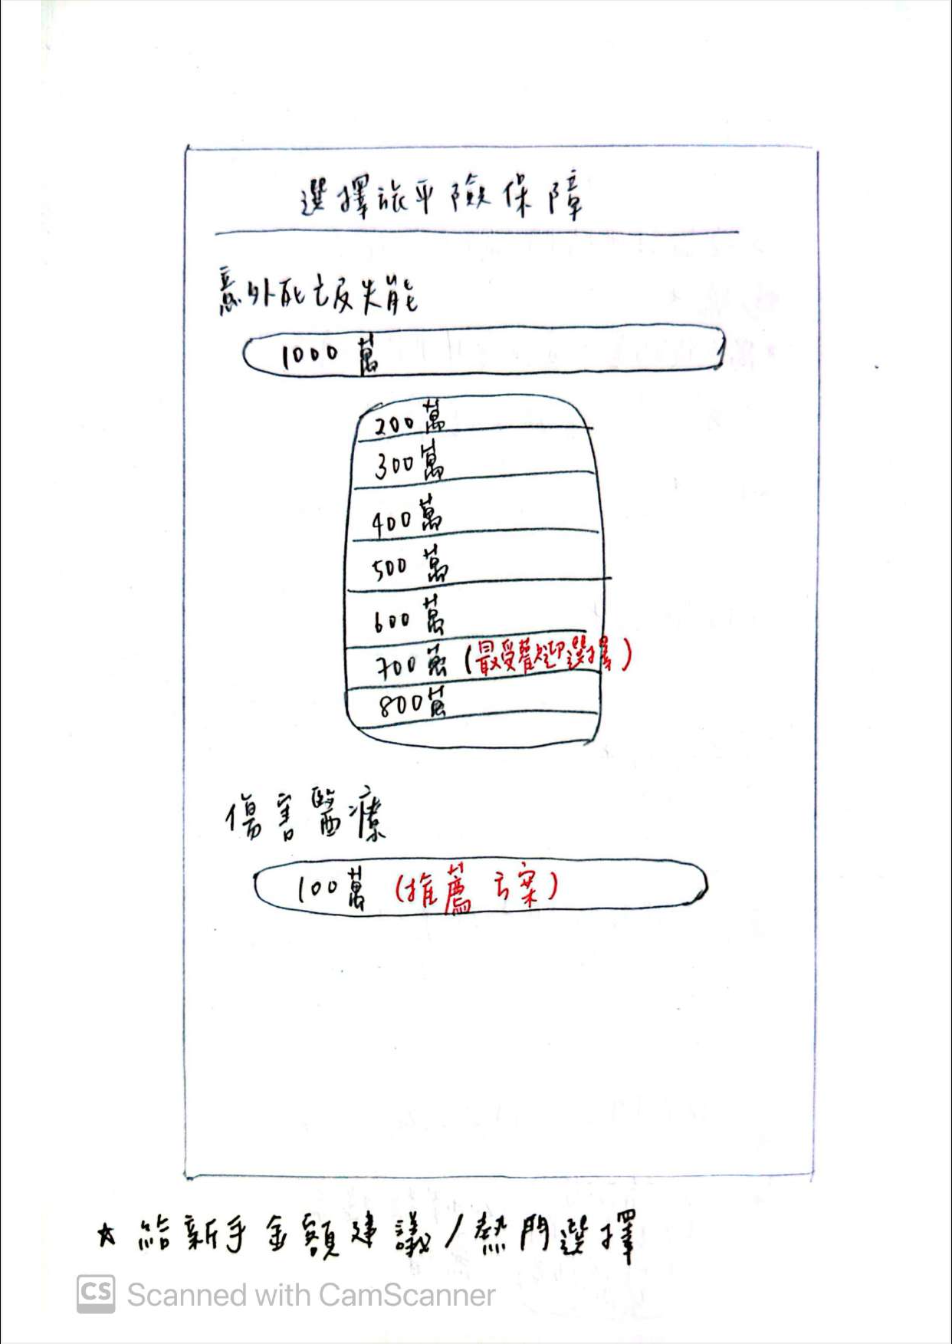 選擇旅平險保障
意外死亡及失能
1000 萬
200 萬
300 萬
400 萬
500 萬
600 萬
700 萬 (最受歡迎選擇)
800 萬
傷害醫療
100 萬 (推薦方案)
★ 給新手金額建議 / 熱門選擇
CS Scanned with CamScanner